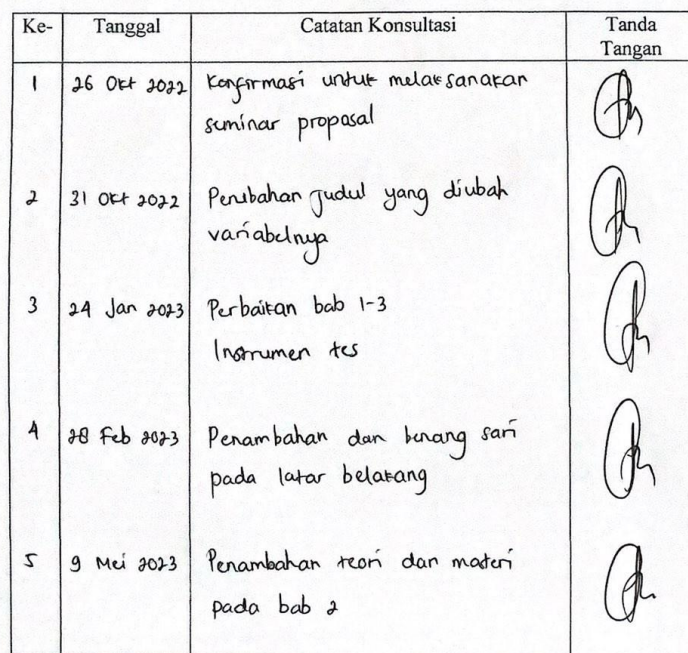 Ke- Tanggal Catatan Konsultasi Tanda Tangan
1 26 Okt 2022 Konfirmasi untuk melaksanakan
seminar proposal
2 31 Okt 2022 Perubahan Judul yang diubah
variabelnya
3 24 Jan 2023 Perbaikan bab 1-3
Instrumen tes
4 28 Feb 2023 Penambahan dan benang sari
pada latar belakang
5 9 Mei 2023 Penambahan teori dan materi
pada bab 2